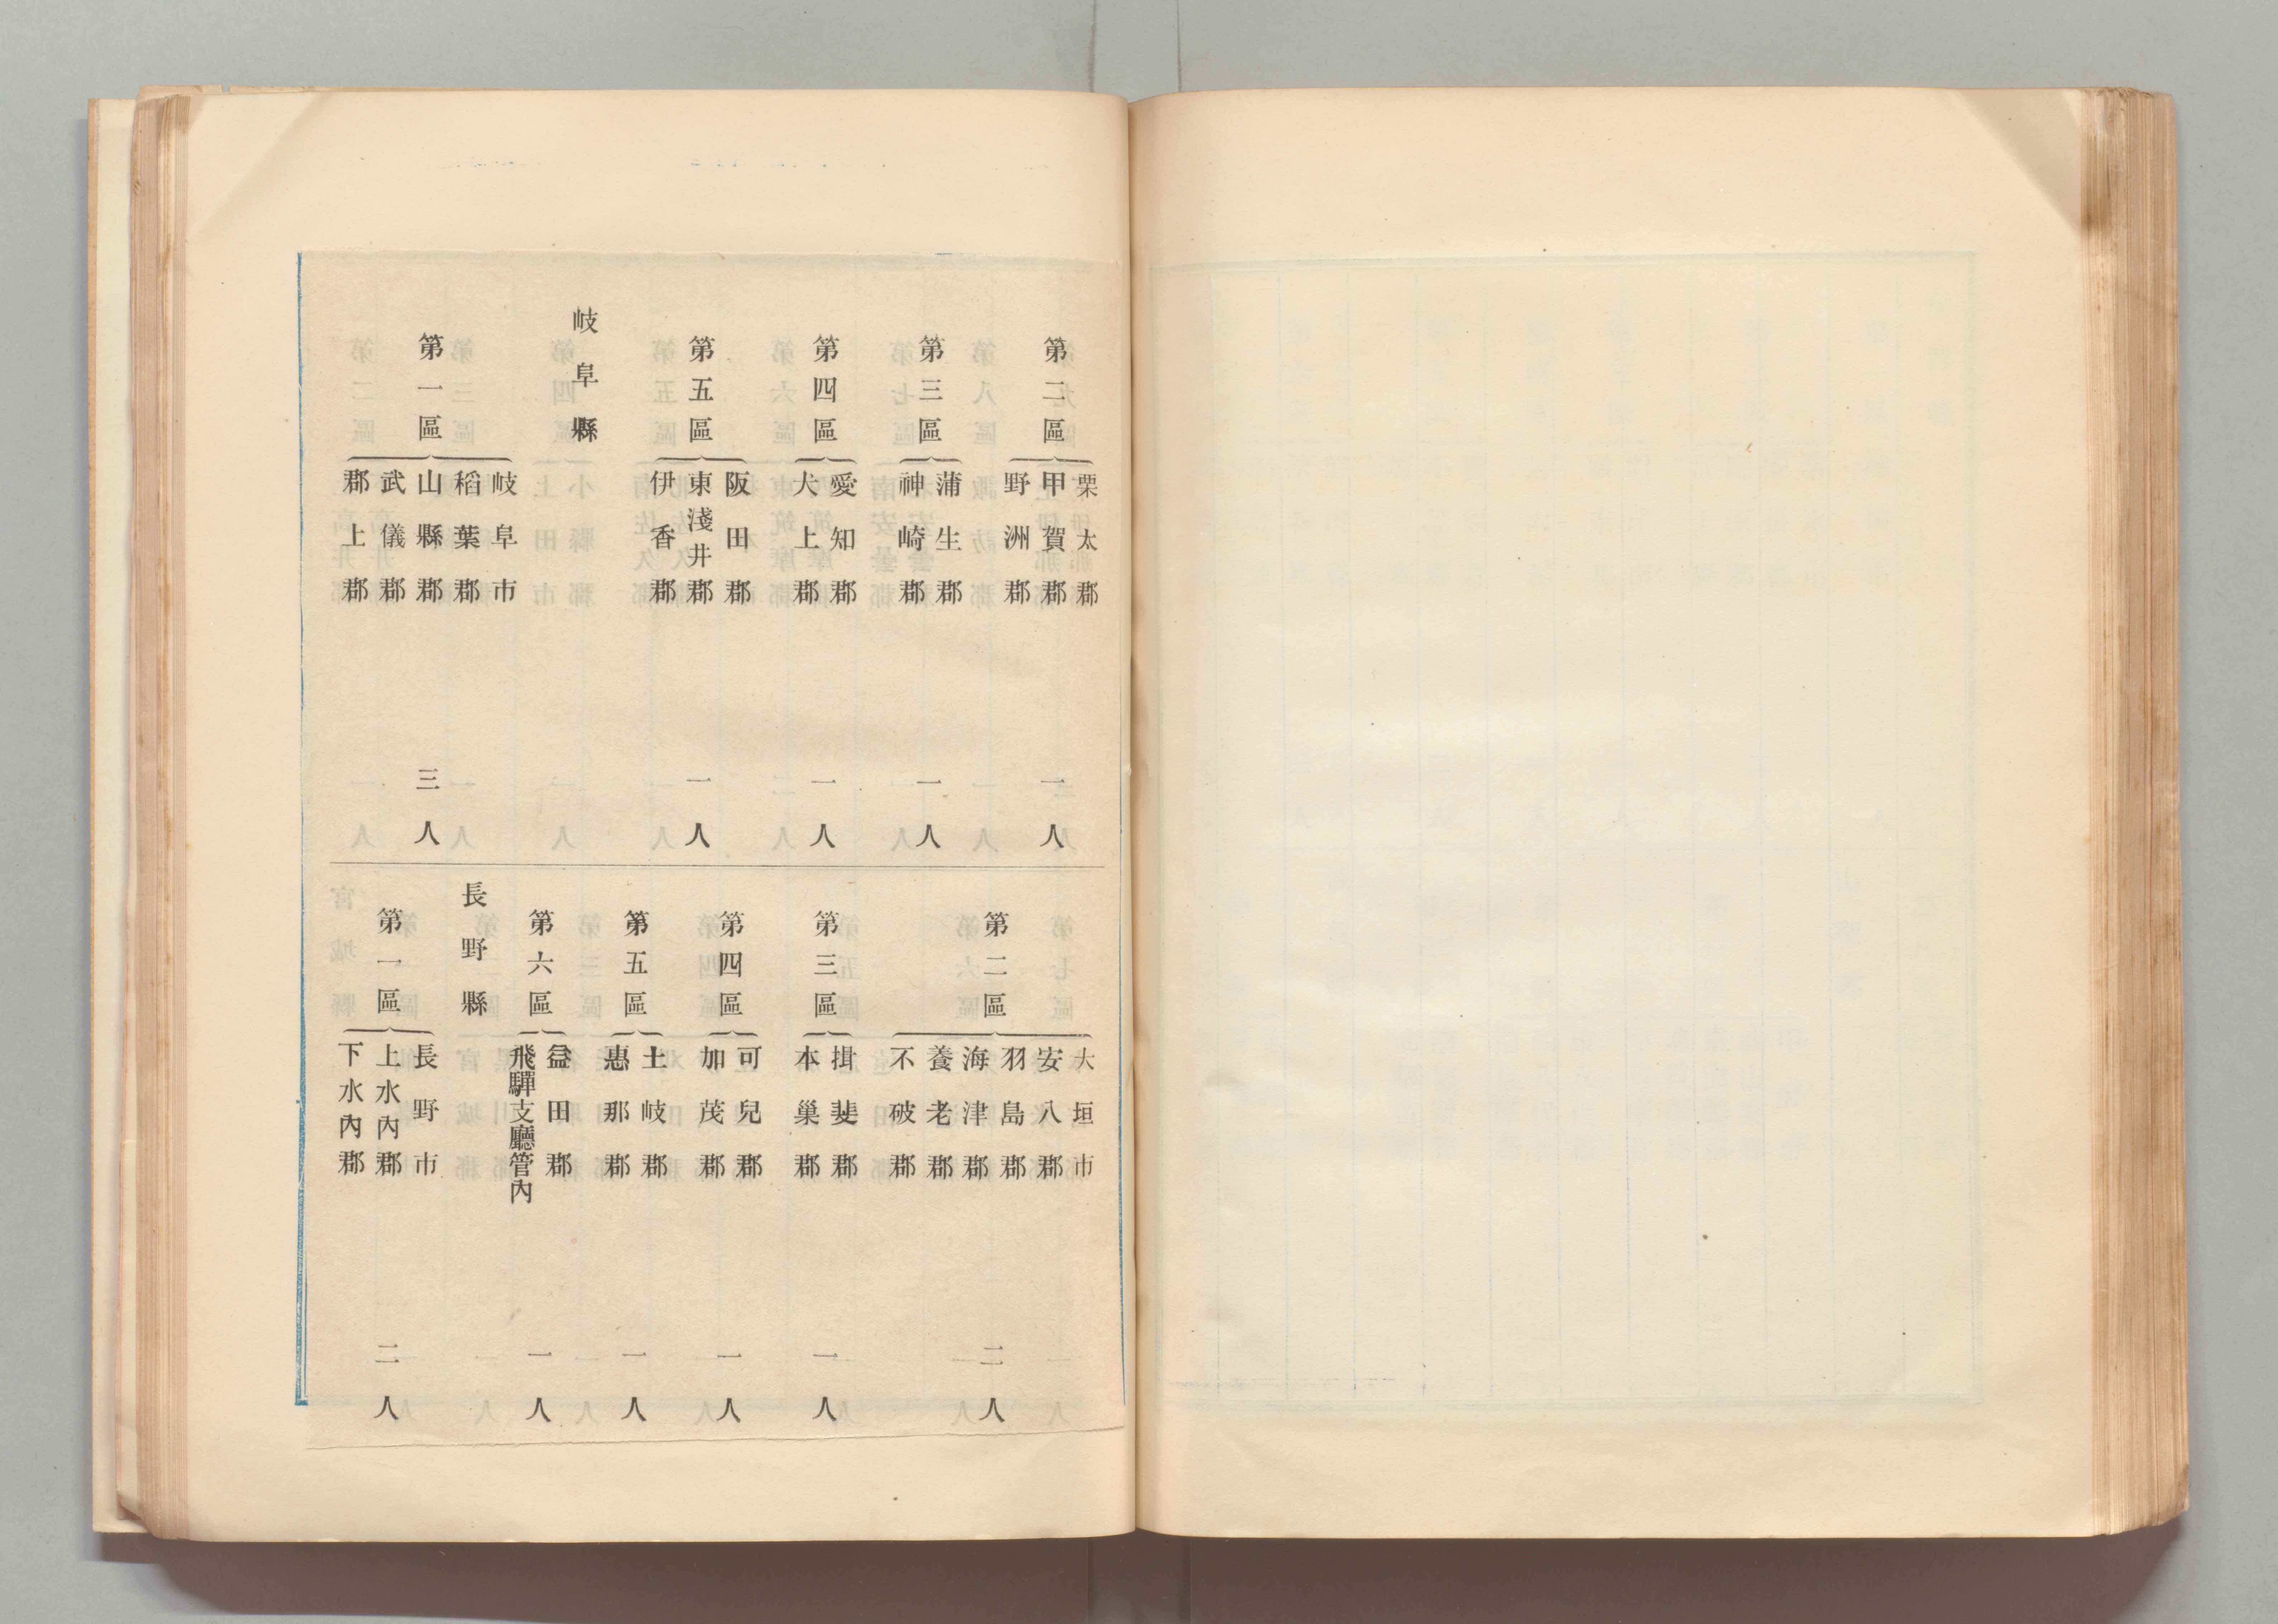 第二區
栗太郡
甲賀郡
野洲郡
一人
第三區
蒲生郡
神崎郡
一人
第四區
愛知郡
犬上郡
一人
第五區
阪田郡
東淺井郡
伊香郡
一人
岐阜縣
第一區
岐阜市
稻葉郡
山縣郡
武儀郡
郡上郡
三人
第二區
大垣市
安八郡
羽島郡
海津郡
養老郡
不破郡
二人
第三區
揖斐郡
本巢郡
一人
第四區
可兒郡
加茂郡
一人
第五區
土岐郡
惠那郡
一人
第六區
益田郡
飛驒支廳管內
一人
長野縣
第一區
長野市
上水內郡
下水內郡
二人